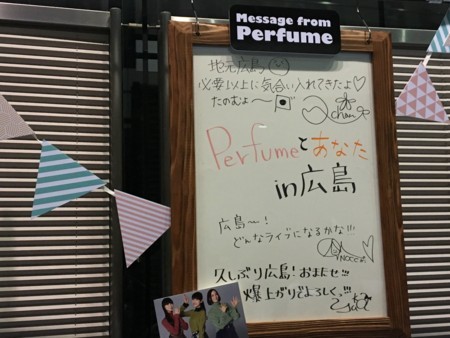 Message from
Perfume
地元広島
必要以上に気合い入れてきたよ♡
たのむよ〜
chan
Perfumeとあなた
in広島
広島〜!
どんなライブになるかな!!!
NOCCHi
久しぶり広島!おまたせ!!!
爆上がりどよろしくっ!!!